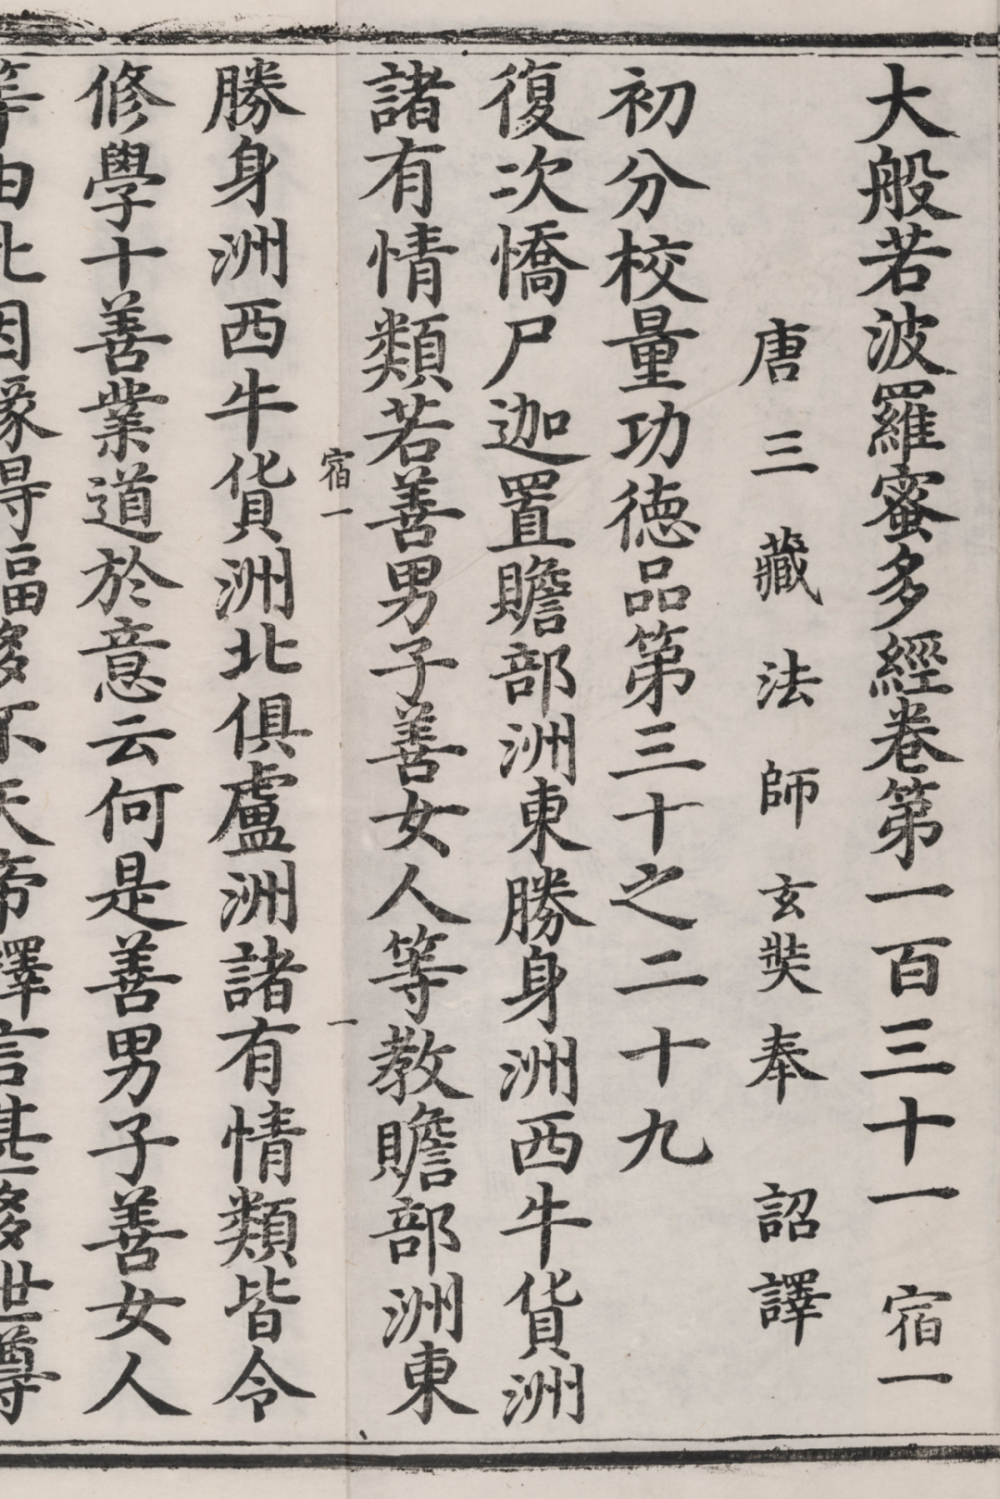 大般若波羅蜜多經卷第一百三十一 宿一
唐三藏法師玄奘奉 詔譯
初分校量功德品第三十之二十九
復次憍尸迦置贍部洲東勝身洲西牛貨洲
諸有情類若善男子善女人等教贍部洲東
宿一 一
勝身洲西牛貨洲北俱盧洲諸有情類皆令
修學十善業道於意云何是善男子善女人
等由此因緣得福多不天帝釋言甚多世尊